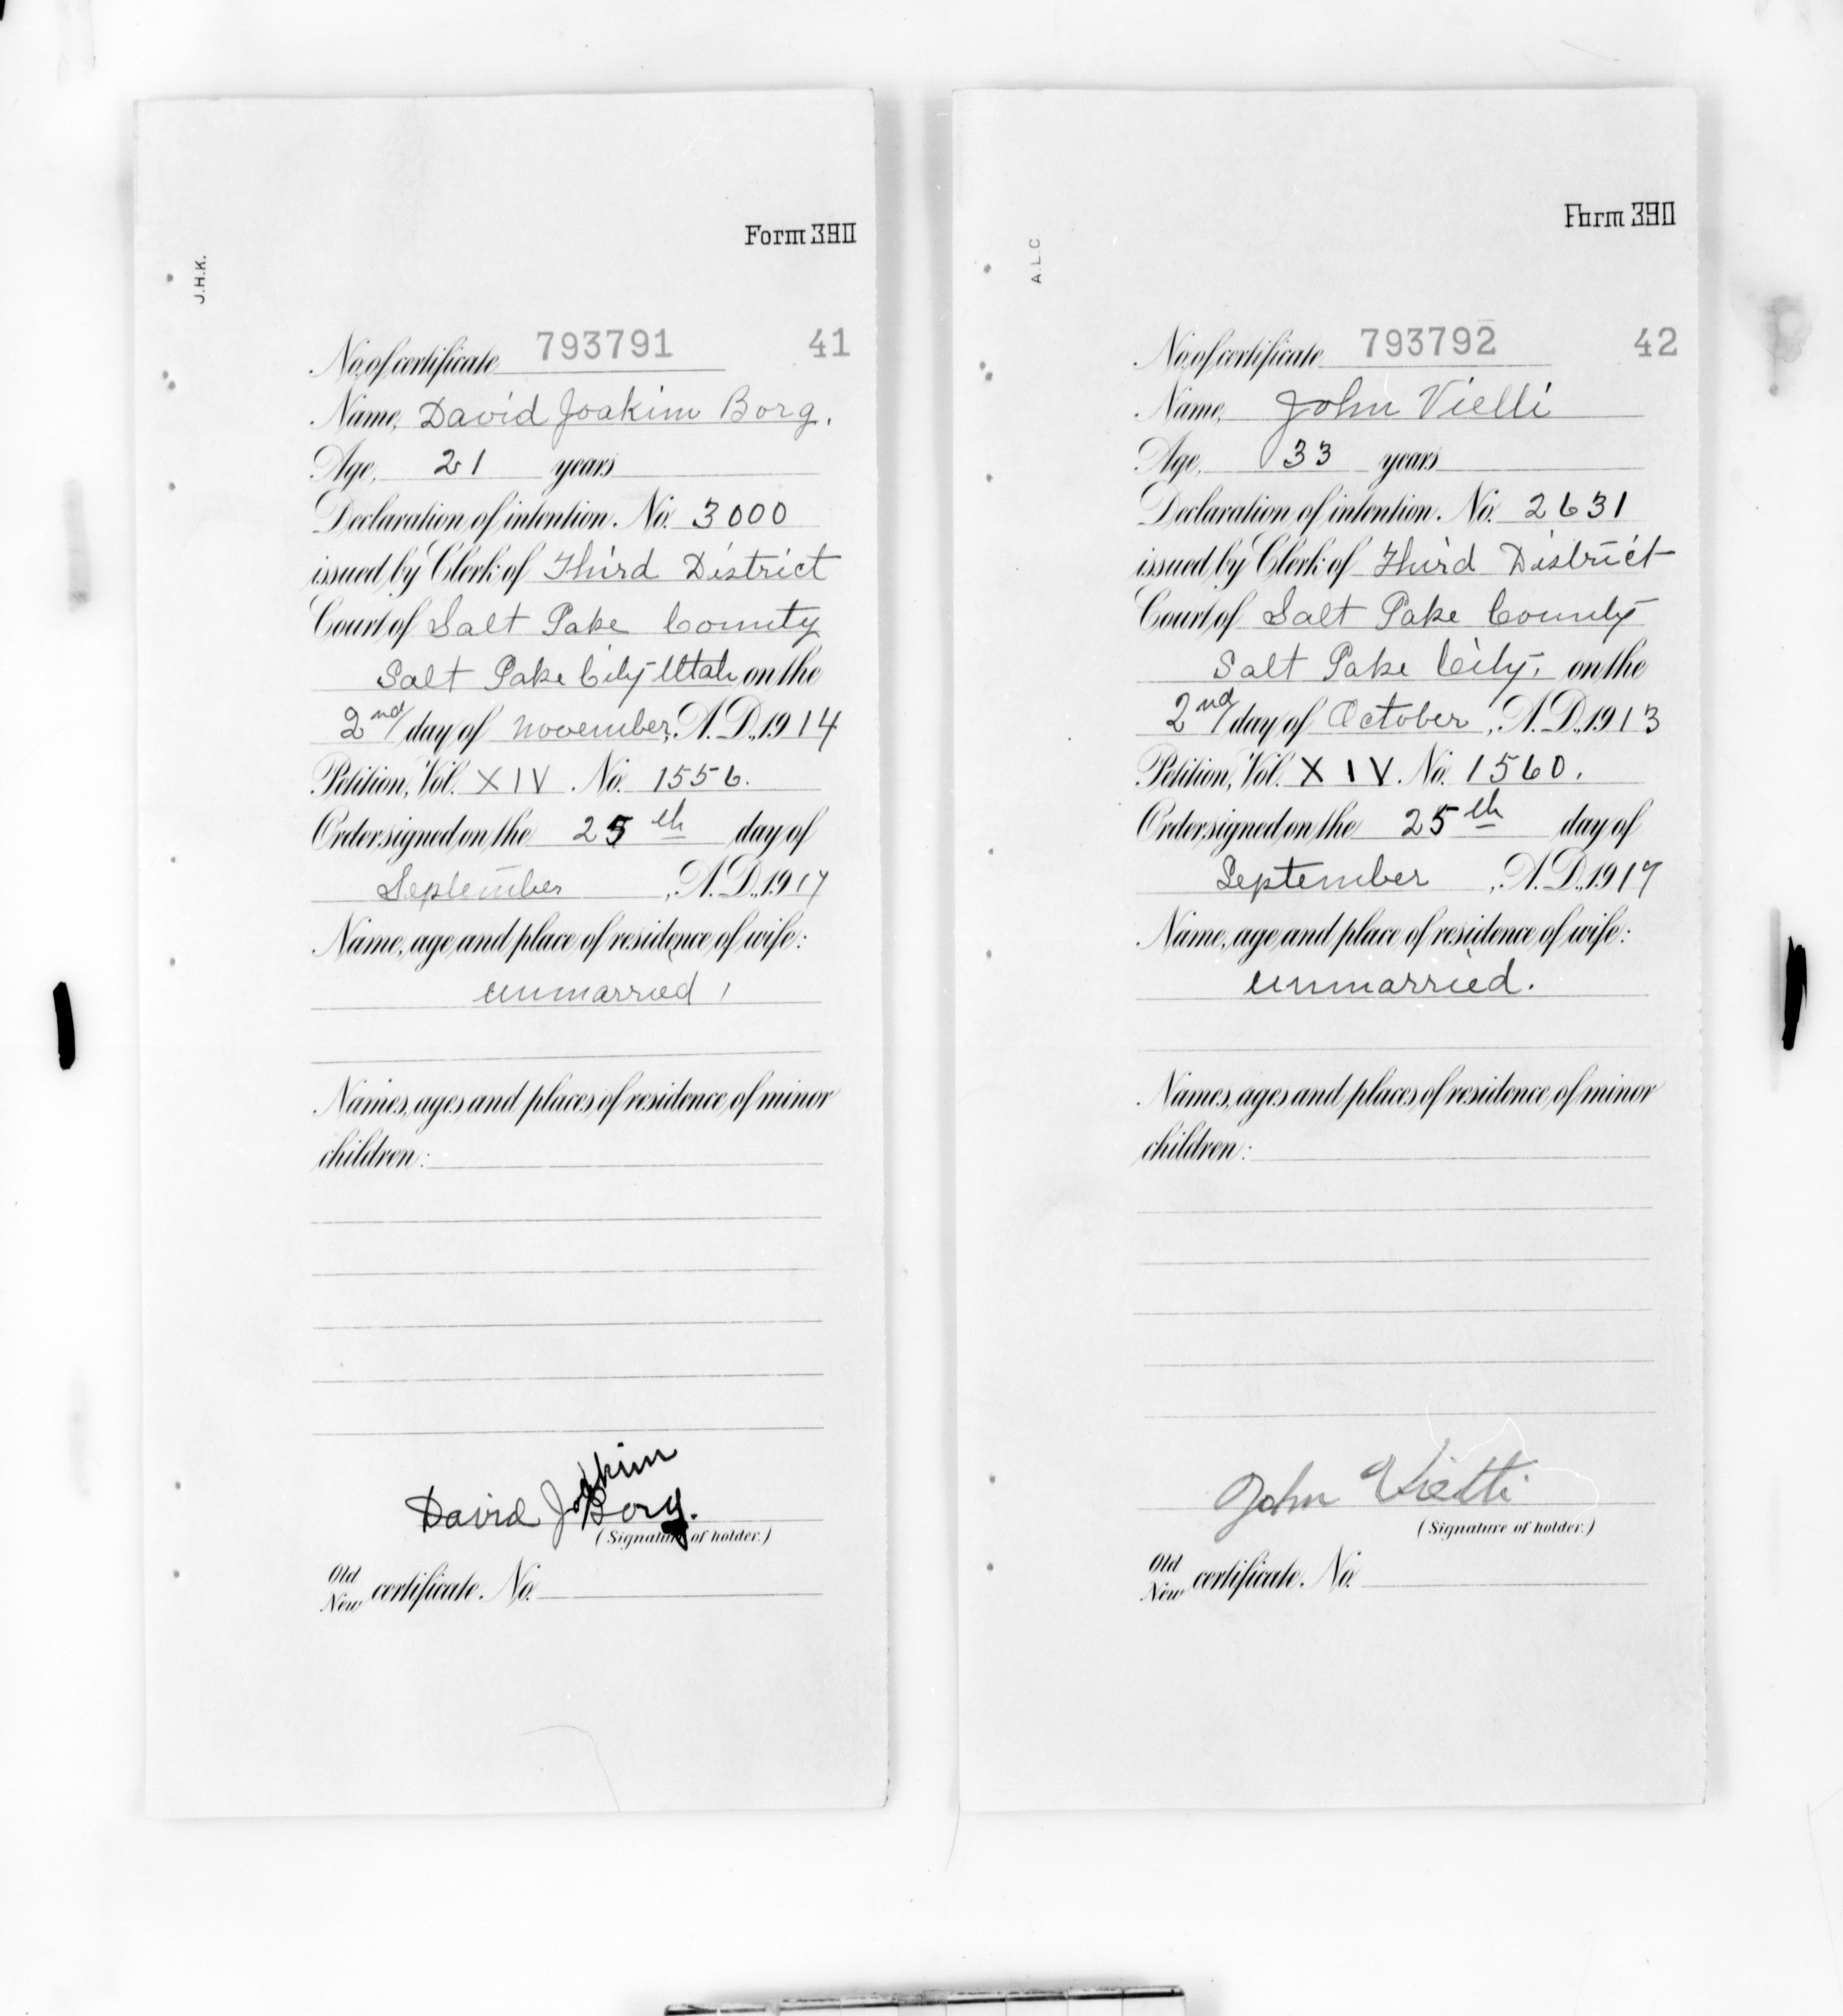 Form 390
J.H.K.
No. of certificate 793791 41
Name, David Joakim Borg.
Age, 21 years
Declaration of intention. No. 3000
issued by Clerk of Third District
Court of Salt Lake County
Salt Lake City Utah on the
2nd day of November, A.D., 1914
Petition, Vol. XIV. No. 1556.
Order signed on the 25th day of
September, A.D., 1917
Name, age and place of residence of wife:
unmarried.
Names, ages and places of residence of minor
children:
David Joakim
Borg.
(Signature of holder.)
Old
New certificate. No.
Form 390
A.L.C
No. of certificate 793792 42
Name, John Vielli
Age, 33 years
Declaration of intention. No. 2631
issued by Clerk of Third District
Court of Salt Lake County
Salt Lake City, on the
2nd day of October, A.D., 1913
Petition, Vol. XIV. No. 1560.
Order signed on the 25th day of
September, A.D., 1917
Name, age and place of residence of wife:
unmarried.
Names, ages and places of residence of minor
children:
John Vietti
(Signature of holder.)
Old
New certificate. No.